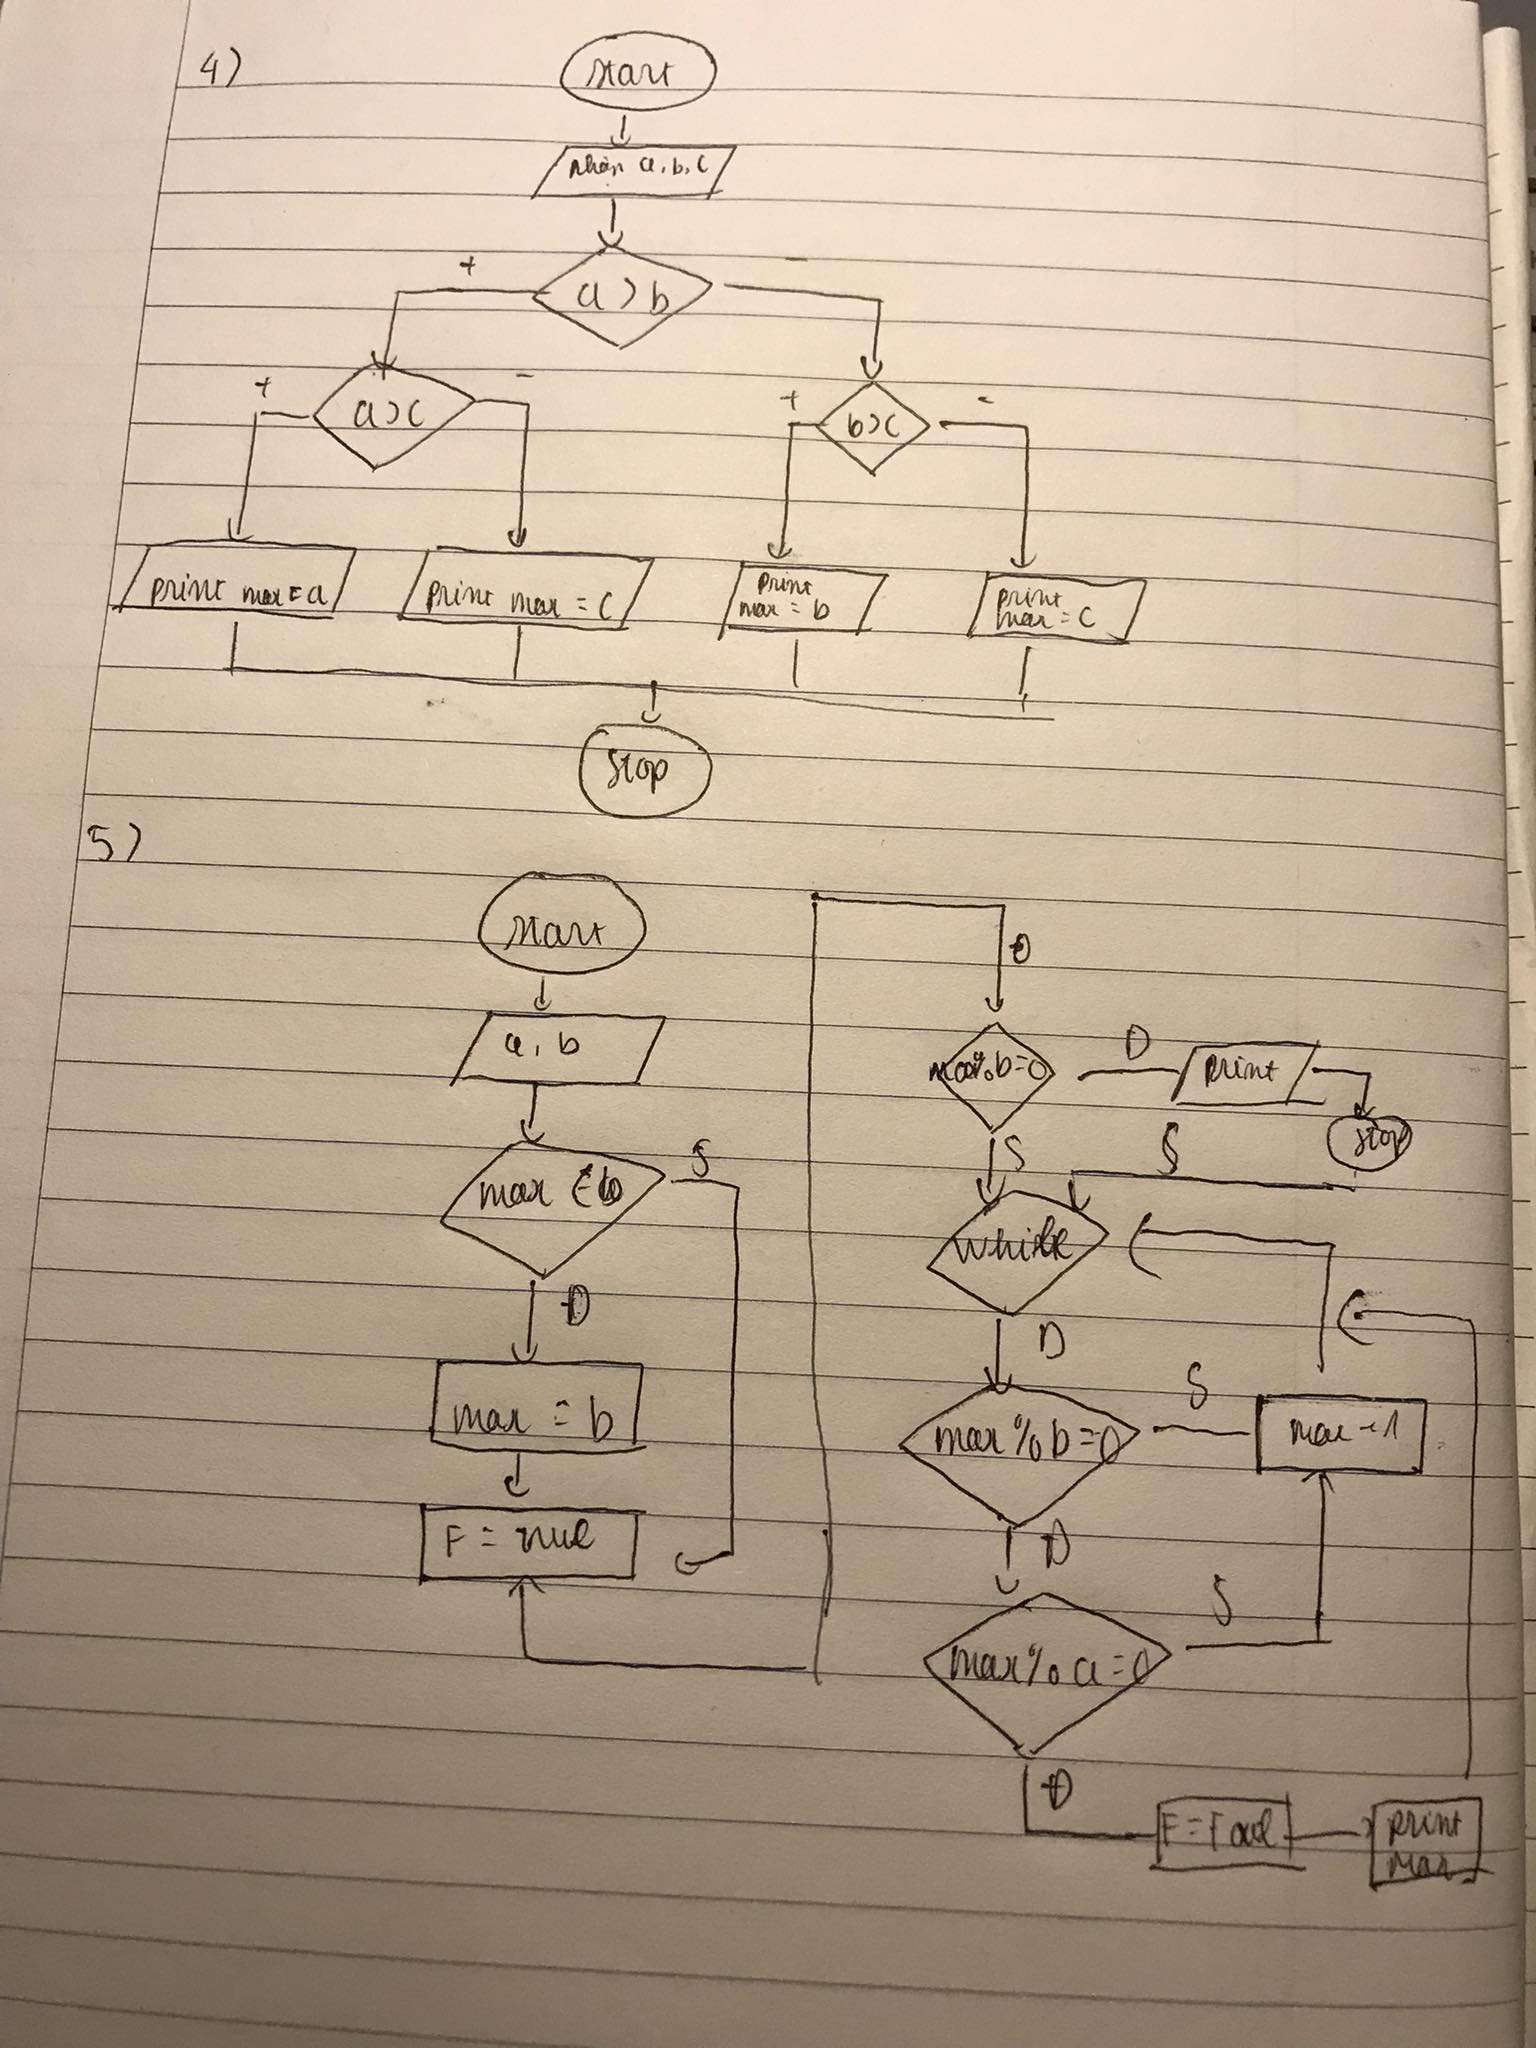 4)
start
nhập a, b, c
+
-
a > b
+
-
a>c
+
-
b>c
print max = a
print max = c
print
max = b
print
max = c
stop
5)
start
a, b
max
S
Đ
max = b
F =
Đ
max%b=0
Đ
print
stop
S
S
while
Đ
max % b = 0
S
Đ
max % a = 0
S
Đ
F =
print
max